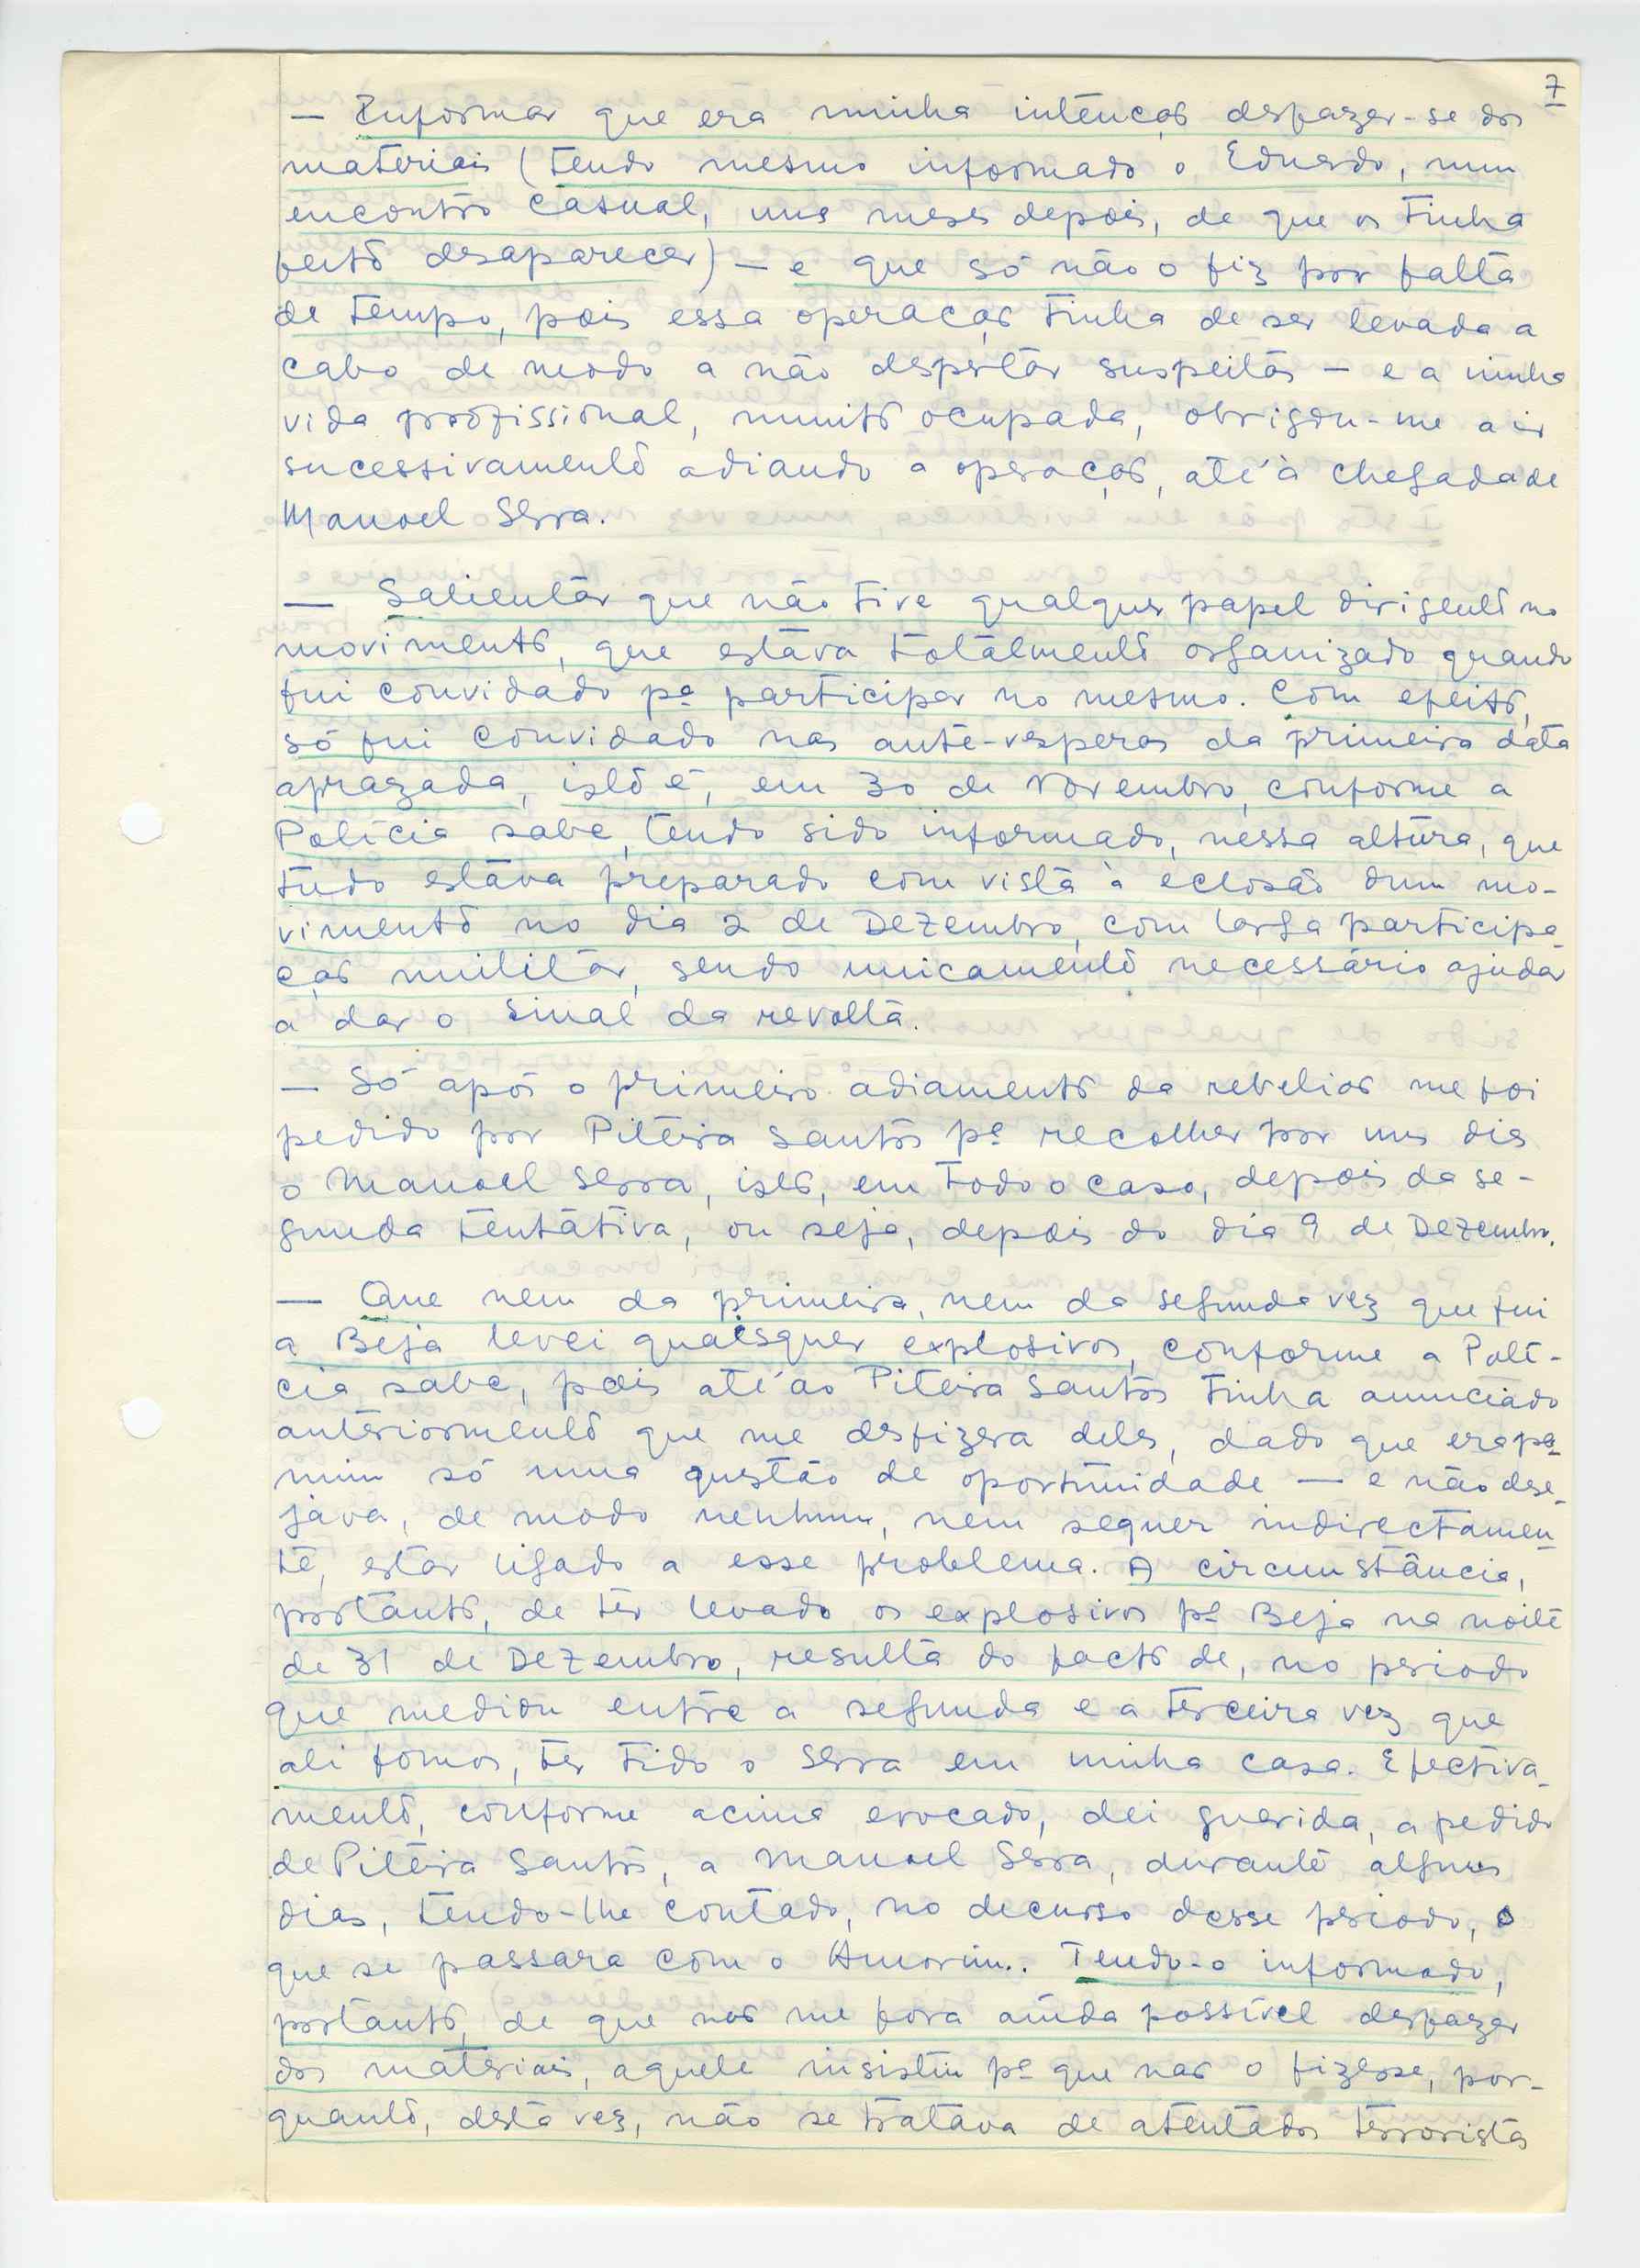 7
— Informar que era minha intenção desfazer-se dos
materiais (tendo mesmo informado o Eduardo, num
encontro casual, uns meses depois, de que os tinha
feito desaparecer) — e que só não o fiz por falta
de tempo, pois essa operação tinha de ser levada a
cabo de modo a não despertar suspeitas — e a minha
vida profissional, muito ocupada, obrigou-me a ir
sucessivamente adiando a operação, até à chegada de
Manoel Serra.
— Salientar que não tive qualquer papel dirigente no
movimento, que estava totalmente organizado quando
fui convidado pª participar no mesmo. Com efeito,
só fui convidado nas ante-vesperas da primeira data
aprazada, isto é, em 30 de Novembro, conforme a
Polícia sabe, tendo sido informado, nessa altura, que
tudo estava preparado com vista à eclosão dum mo-
vimento no dia 2 de Dezembro, com larga participa-
ção militar, sendo unicamente necessário ajudar
a dar o sinal da revolta.
— Só após o primeiro adiamento da rebelião me foi
pedido por Piteira Santos pª recolher por uns dias
o Manoel Serra, isto, em todo o caso, depois da se-
gunda tentativa, ou seja, depois do dia 9 de Dezembro.
— Que nem da primeira, nem da segunda vez que fui
a Beja levei quaisquer explosivos, conforme a Polí-
cia sabe, pois até ao Piteira Santos tinha anunciado
anteriormente que me desfizera deles, dado que era pª
mim só uma questão de oportunidade — e não dese-
java, de modo nenhum, nem sequer indirectamen-
te, estar ligado a esse problema. A circunstância,
portanto, de ter levado os explosivos pª Beja na noite
de 31 de Dezembro, resulta do facto de, no periodo
que mediou entre a segunda e a terceira vez que
ali fomos, ter tido o Serra em minha casa. Efectiva-
mente, conforme acima evocado, dei guarida, a pedido
de Piteira Santos, a Manoel Serra, durante alguns
dias, tendo-lhe contado, no decurso desse periodo, o
que se passara com o Amorim. Tendo-o informado,
portanto, de que não me fora ainda possível desfazer
dos materiais, aquele insistiu pª que não o fizesse, por-
quanto, desta vez, não se tratava de atentados terroristas